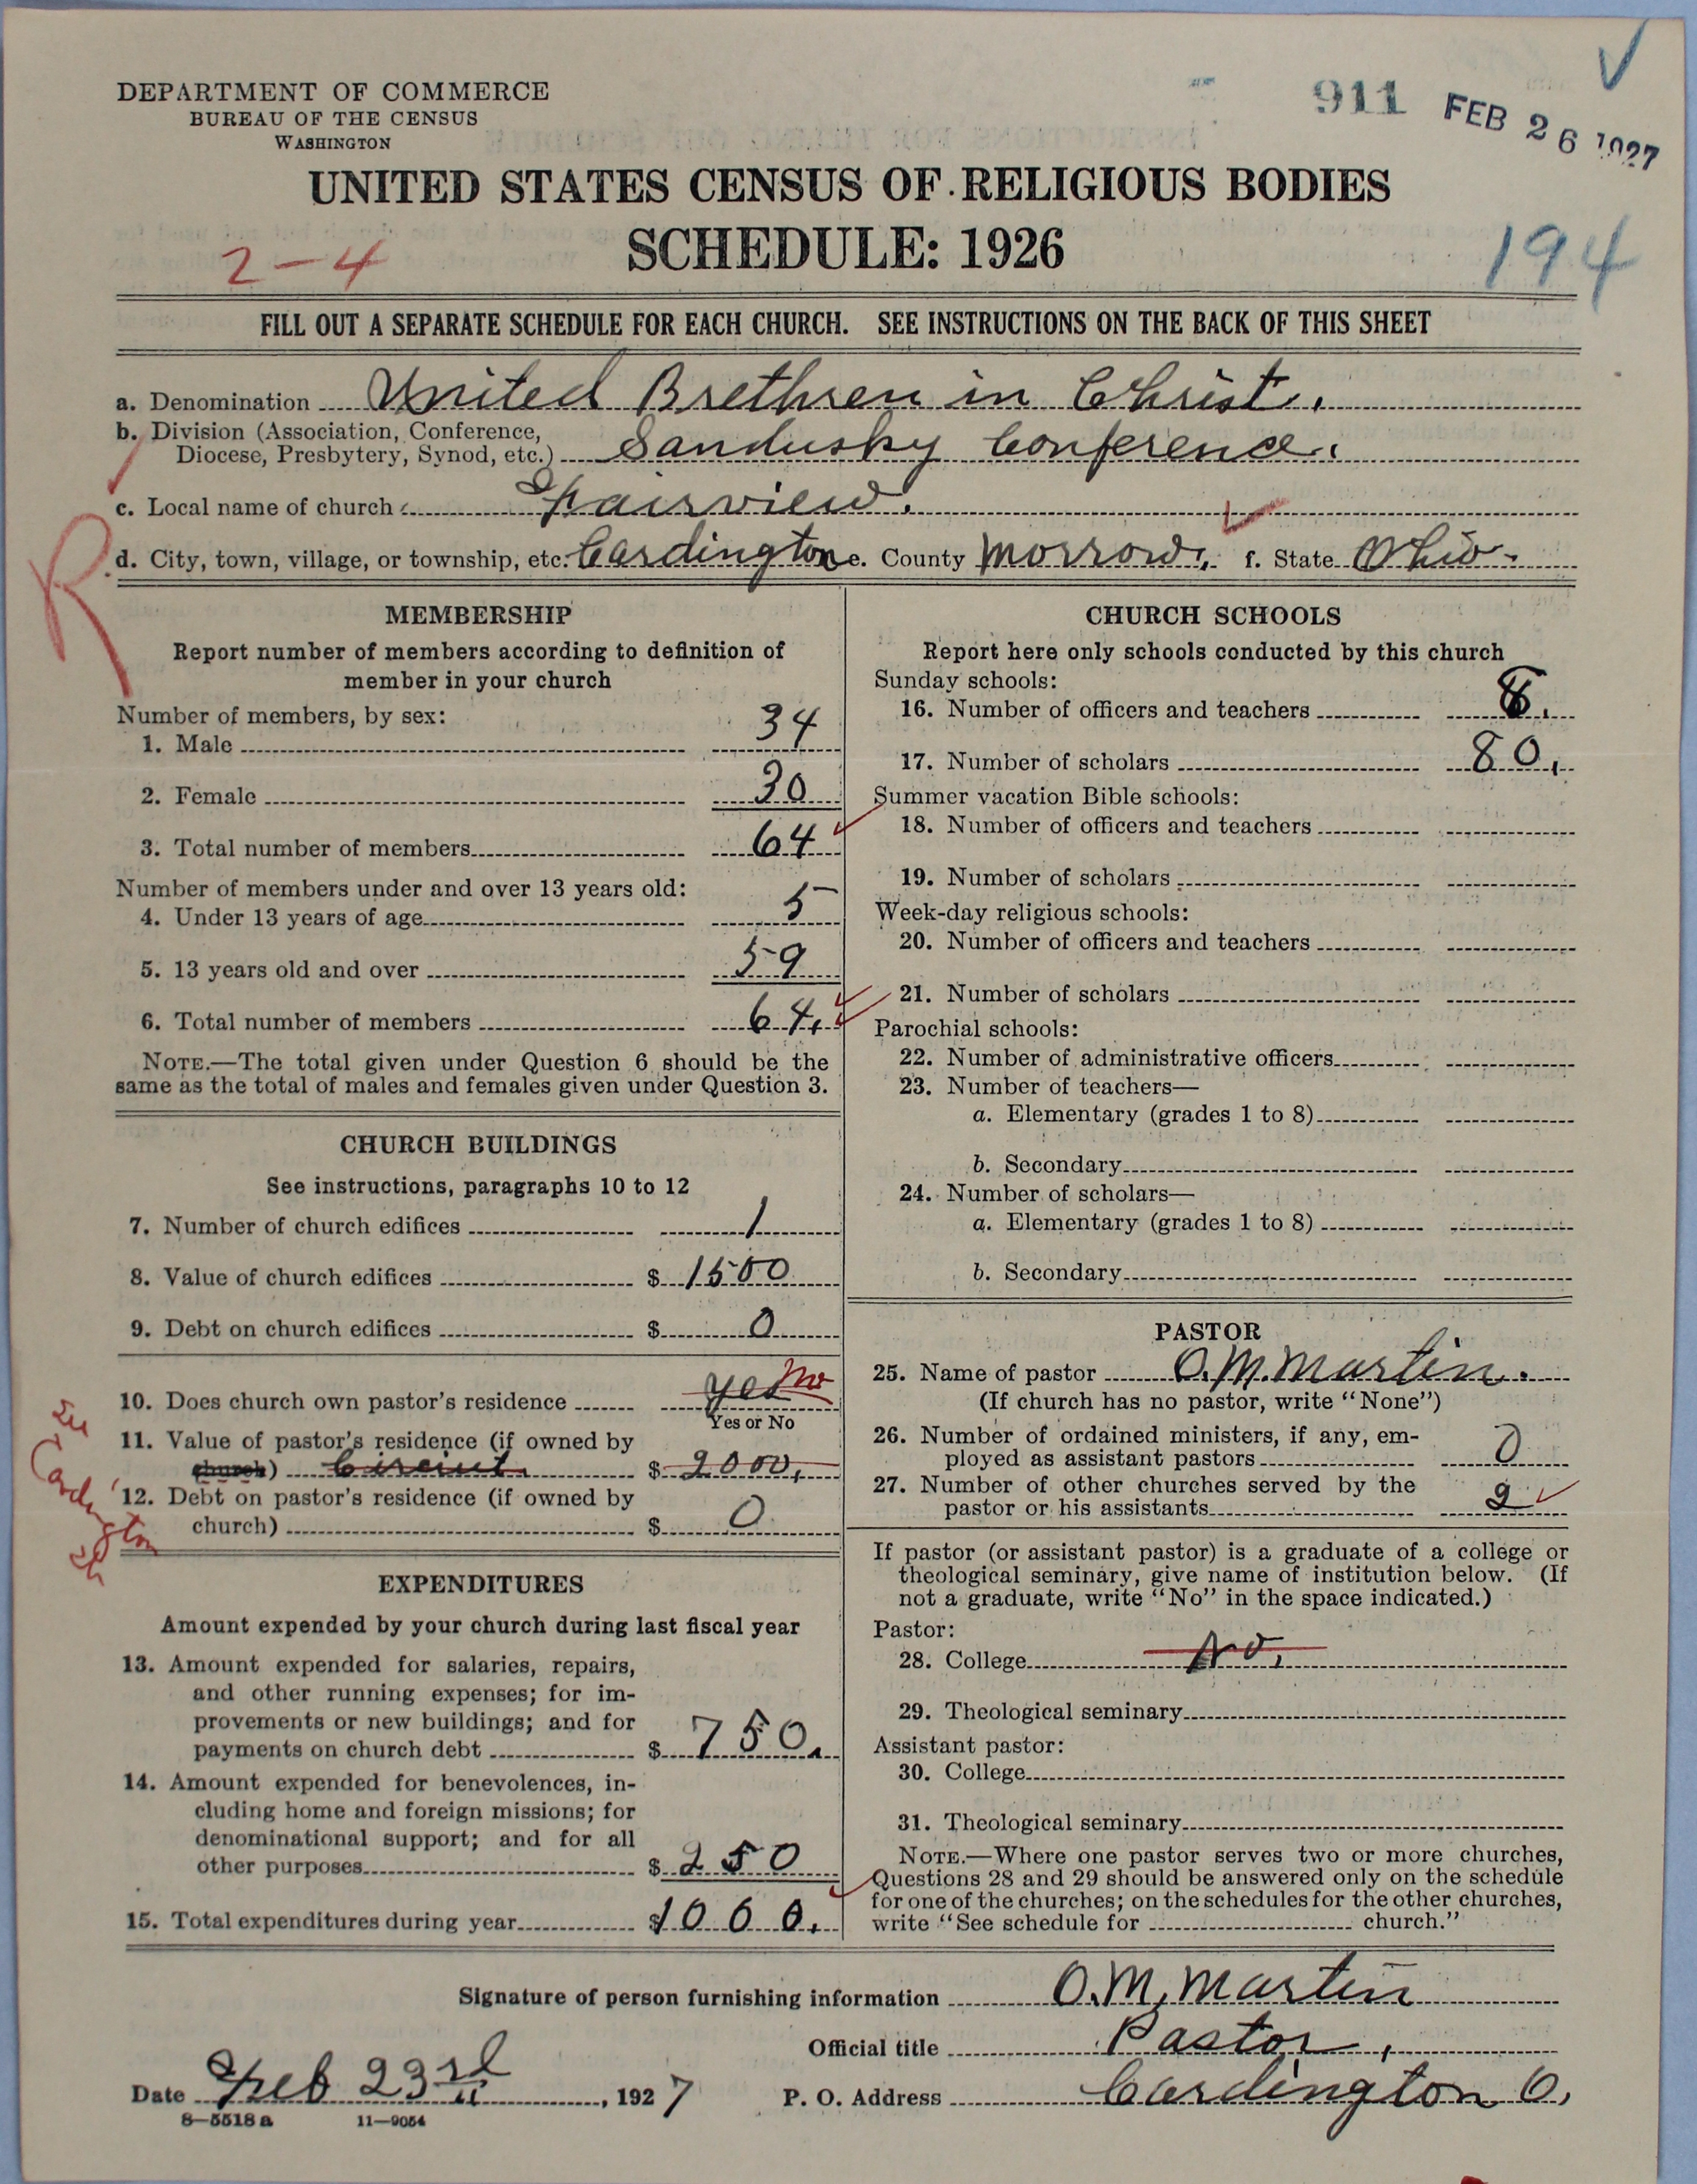 DEPARTMENT OF COMMERCE
BUREAU OF THE CENSUS
WASHINGTON
911 FEB 26 1927
UNITED STATES CENSUS OF RELIGIOUS BODIES
SCHEDULE: 1926
2-4
194
FILL OUT A SEPARATE SCHEDULE FOR EACH CHURCH. SEE INSTRUCTIONS ON THE BACK OF THIS SHEET
a. Denomination United Brethren in Christ.
b. Division (Association, Conference,
Diocese, Presbytery, Synod, etc.) Sandusky Conference.
c. Local name of church Fairview.
R
d. City, town, village, or township, etc. Cardington e. County Morrow, f. State Ohio.
MEMBERSHIP
Report number of members according to definition of
member in your church
Number of members, by sex:
1. Male 34
2. Female 30
3. Total number of members 64
Number of members under and over 13 years old:
4. Under 13 years of age 5
5. 13 years old and over 59
6. Total number of members 64.
NOTE.—The total given under Question 6 should be the
same as the total of males and females given under Question 3.
CHURCH BUILDINGS
See instructions, paragraphs 10 to 12
7. Number of church edifices 1
8. Value of church edifices $ 1500
9. Debt on church edifices $ 0
10. Does church own pastor's residence yes no
Yes or No
11. Value of pastor's residence (if owned by
church) Circuit. $ 2000.
12. Debt on pastor's residence (if owned by
church) $ 0
See Cardington
EXPENDITURES
Amount expended by your church during last fiscal year
13. Amount expended for salaries, repairs,
and other running expenses; for im-
provements or new buildings; and for
payments on church debt $ 750.
14. Amount expended for benevolences, in-
cluding home and foreign missions; for
denominational support; and for all
other purposes $ 250
15. Total expenditures during year $ 1000.
CHURCH SCHOOLS
Report here only schools conducted by this church
Sunday schools:
16. Number of officers and teachers
17. Number of scholars 80.
Summer vacation Bible schools:
18. Number of officers and teachers
19. Number of scholars
Week-day religious schools:
20. Number of officers and teachers
21. Number of scholars
Parochial schools:
22. Number of administrative officers
23. Number of teachers—
a. Elementary (grades 1 to 8)
b. Secondary
24. Number of scholars—
a. Elementary (grades 1 to 8)
b. Secondary
PASTOR
25. Name of pastor O. M. Martin.
(If church has no pastor, write "None")
26. Number of ordained ministers, if any, em-
ployed as assistant pastors 0
27. Number of other churches served by the
pastor or his assistants 2
If pastor (or assistant pastor) is a graduate of a college or
theological seminary, give name of institution below. (If
not a graduate, write "No" in the space indicated.)
Pastor:
28. College No.
29. Theological seminary
Assistant pastor:
30. College
31. Theological seminary
NOTE.—Where one pastor serves two or more churches,
Questions 28 and 29 should be answered only on the schedule
for one of the churches; on the schedules for the other churches,
write "See schedule for church."
Signature of person furnishing information O. M. Martin
Official title Pastor,
Date Feb 23rd, 1927 P. O. Address Cardington O.
8—5518a 11—9054